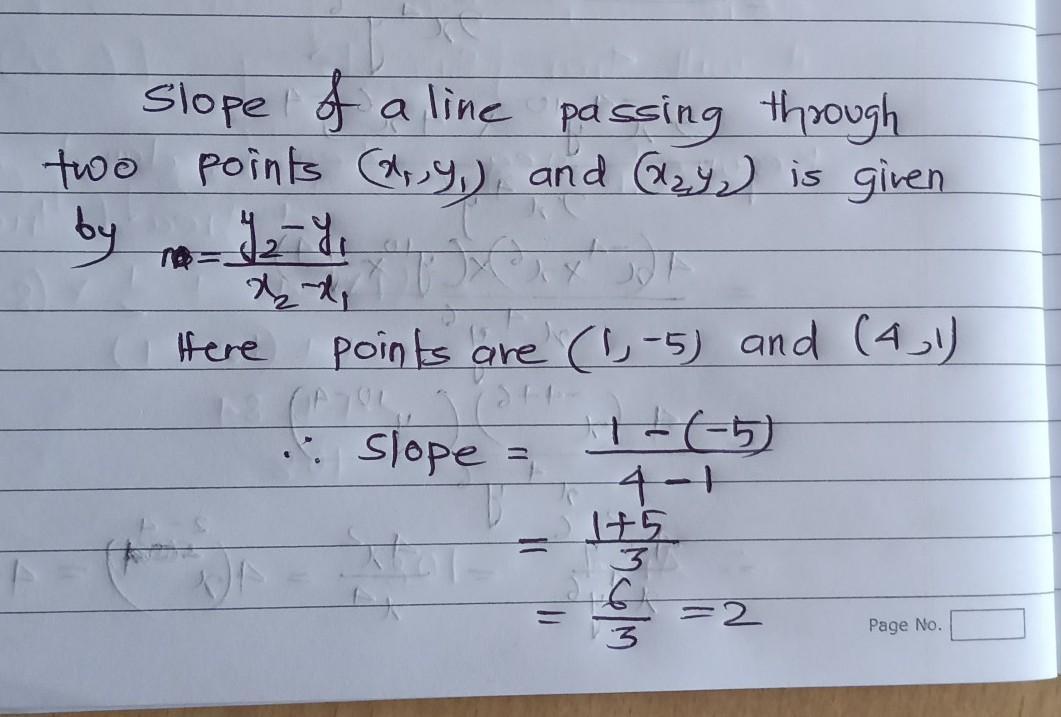 Slope of a line passing through
two points (x₁,y₁) and (x₂,y₂) is given
by m = y₂-y₁ / x₂-x₁
Here points are (1,-5) and (4,1)
∴ Slope = 1-(-5) / 4-1
= 1+5 / 3
= 6/3 = 2
Page No.